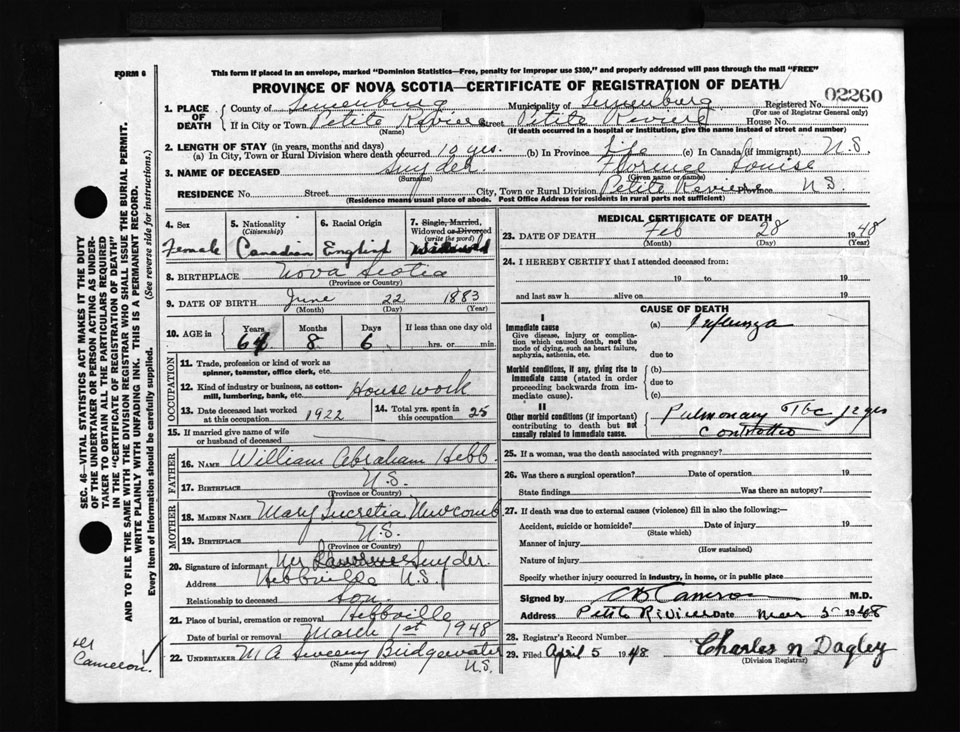 FORM 6
This form if placed in an envelope, marked "Dominion Statistics—Free, penalty for improper use $300," and properly addressed will pass through the mail "FREE"
PROVINCE OF NOVA SCOTIA—CERTIFICATE OF REGISTRATION OF DEATH
02260
1. PLACE OF DEATH
County of Lunenburg Municipality of Lunenburg Registered No.
(For use of Registrar General only)
If in City or Town Petite Riviere Street Petite Riviere House No.
(Name) (If death occurred in a hospital or institution, give the name instead of street and number)
2. LENGTH OF STAY (in years, months and days)
(a) In City, Town or Rural Division where death occurred 10 yrs. (b) In Province Life (c) In Canada (if immigrant) N.S.
3. NAME OF DECEASED Snyder Florence Louise
(Surname) (Given name or names)
RESIDENCE No. Street City, Town or Rural Division Petite Riviere Province N.S.
(Residence means usual place of abode. Post Office Address for residents in rural parts not sufficient)
4. Sex
Female
5. Nationality
(Citizenship)
Canadian
6. Racial Origin
English
7. Single, Married,
Widowed or Divorced
(write the word)
Widowed
8. BIRTHPLACE Nova Scotia
(Province or Country)
9. DATE OF BIRTH June 22 1883
(Month) (Day) (Year)
10. AGE in
Years Months Days If less than one day old
64 8 6 hrs. or min.
OCCUPATION
11. Trade, profession or kind of work as
spinner, teamster, office clerk, etc.
12. Kind of industry or business, as cotton-
mill, lumbering, bank, etc. Housework
13. Date deceased last worked
at this occupation 1922
14. Total yrs. spent in
this occupation 25
15. If married give name of wife
or husband of deceased
FATHER
16. NAME William Abraham Hebb.
17. BIRTHPLACE N.S.
(Province or Country)
MOTHER
18. MAIDEN NAME Mary Lucretia Newcomb
19. BIRTHPLACE N.S.
(Province or Country)
20. Signature of informant Mr Lawrence Snyder.
Address Hebbville N.S.
Relationship to deceased Son.
21. Place of burial, cremation or removal Hebbville
Date of burial or removal March 1st 1948
22. UNDERTAKER M A Sweeny Bridgewater
(Name and address) N.S.
MEDICAL CERTIFICATE OF DEATH
23. DATE OF DEATH Feb 28 1948
(Month) (Day) (Year)
24. I HEREBY CERTIFY that I attended deceased from:
19 to 19
and last saw h alive on 19
CAUSE OF DEATH
I
Immediate cause
Give disease, injury or complication
which caused death, not the
mode of dying, such as heart failure,
asphyxia, asthenia, etc.
(a) Influenza
due to
Morbid conditions, if any, giving rise to
immediate cause (stated in order
proceeding backwards from immediate
cause).
(b)
due to
(c)
II
Other morbid conditions (if important)
contributing to death but not
causally related to immediate cause.
Pulmonary Tbc 12 yrs
25. If a woman, was the death associated with pregnancy?
26. Was there a surgical operation? Date of operation 19
State findings Was there an autopsy?
27. If death was due to external causes (violence) fill in also the following:—
Accident, suicide or homicide? Date of injury 19
(State which)
Manner of injury
(How sustained)
Nature of injury
Specify whether injury occurred in industry, in home, or in public place
Signed by Cameron M.D.
Address Petite Riviere Date Mar 5 1948
28. Registrar's Record Number
29. Filed April 5 1948 Charles N Dagley
(Division Registrar)
SEC. 46—VITAL STATISTICS ACT MAKES IT THE DUTY
OF THE UNDERTAKER OR PERSON ACTING AS UNDER-
TAKER TO OBTAIN ALL THE PARTICULARS REQUIRED
IN THE "CERTIFICATE OF REGISTRATION OF DEATH"
AND TO FILE THE SAME WITH THE DIVISION REGISTRAR WHO SHALL ISSUE THE BURIAL PERMIT.
WRITE PLAINLY WITH UNFADING INK. THIS IS A PERMANENT RECORD.
Every item of information should be carefully supplied. (See reverse side for instructions.)
Cameron